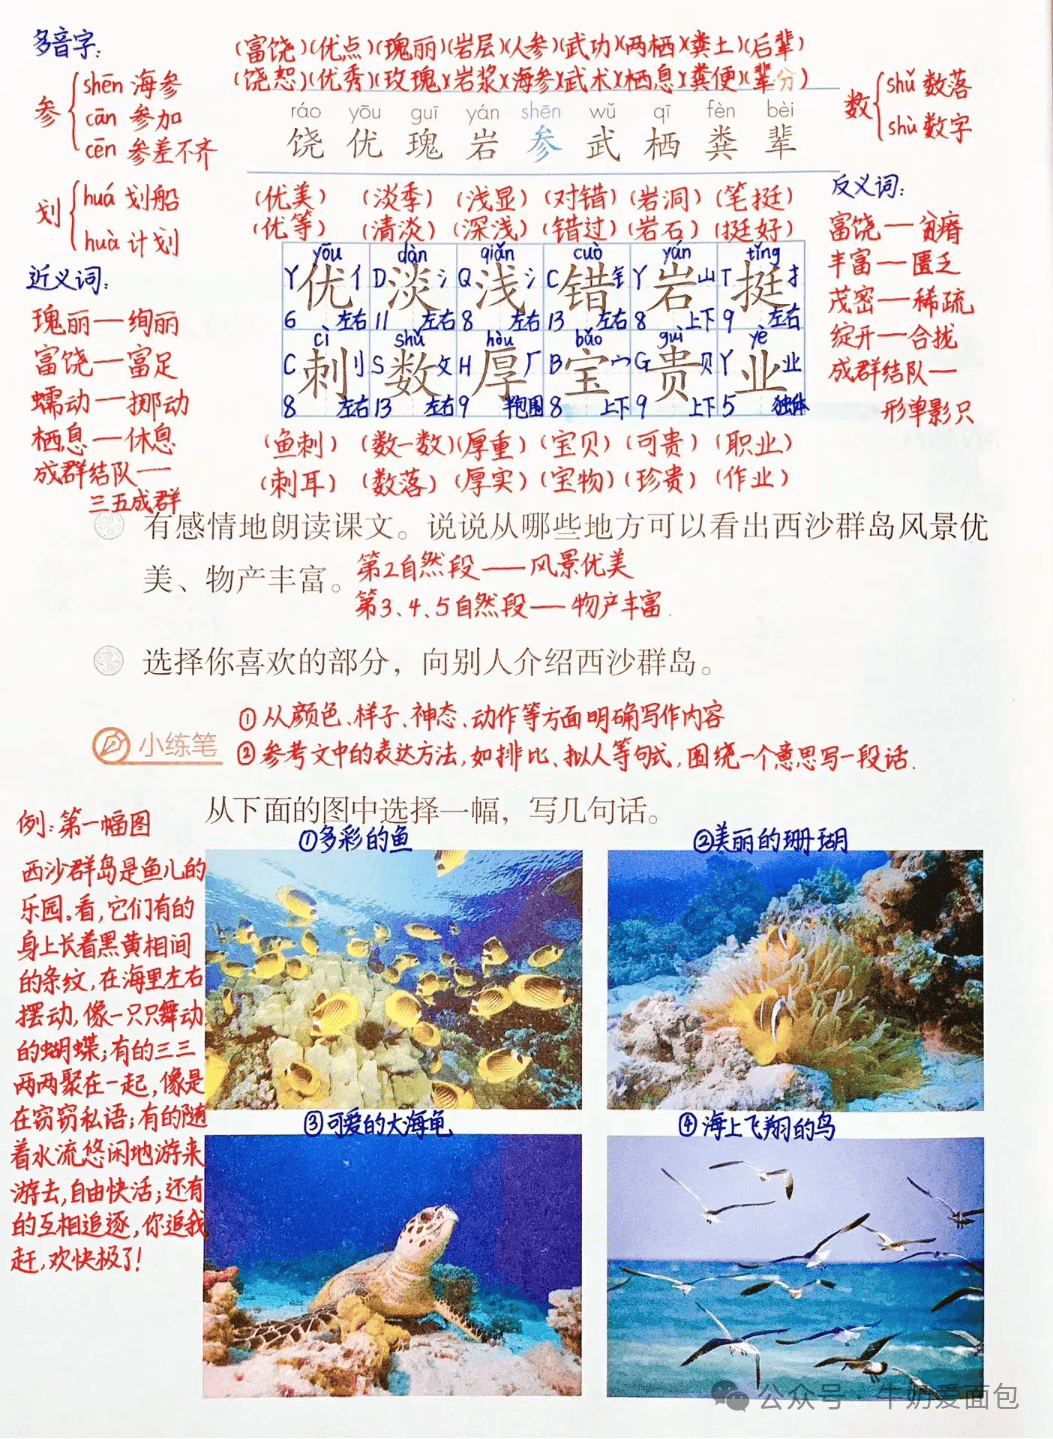 多音字:
参 shēn 海参
cān 参加
cēn 参差不齐
划 huá 划船
huà 计划
(富饶)(优点)(瑰丽)(岩层)(人参)(武功)(两栖)(粪土)(后辈)
(饶恕)(优秀)(玫瑰)(岩浆)(海参)(武术)(栖息)(粪便)(辈分)
ráo yōu guī yán shēn wǔ qī fèn bèi
饶 优 瑰 岩 参 武 栖 粪 辈
数 shǔ 数落
shù 数字
(优美) (淡季) (浅显) (对错) (岩洞) (笔挺)
(优等) (清淡) (深浅) (错过) (岩石) (挺好)
yōu dàn qiǎn cuò yán tǐng
Y 优 亻 D 淡 氵 Q 浅 氵 C 错 钅 Y 岩 山 T 挺 扌
6 左右 11 左右 8 左右 13 左右 8 上下 9 左右
cì shǔ hòu bǎo guì yè
C 刺 刂 S 数 攵 H 厚 厂 B 宝 宀 G 贵 贝 Y 业 业
8 左右 13 左右 9 半包围 8 上下 9 上下 5 独体
(鱼刺) (数一数) (厚重) (宝贝) (可贵) (职业)
(刺耳) (数落) (厚实) (宝物) (珍贵) (作业)
近义词:
瑰丽—绚丽
富饶—富足
蠕动—挪动
栖息—休息
成群结队—
三五成群
反义词:
富饶—贫瘠
丰富—匮乏
茂密—稀疏
绽开—合拢
成群结队—
形单影只
有感情地朗读课文。说说从哪些地方可以看出西沙群岛风景优
美、物产丰富。
第2自然段——风景优美
第3、4、5自然段——物产丰富.
选择你喜欢的部分，向别人介绍西沙群岛。
小练笔
①从颜色、样子、神态、动作等方面明确写作内容
②参考文中的表达方法,如排比、拟人等句式,围绕一个意思写一段话.
从下面的图中选择一幅，写几句话。
例:第一幅图
西沙群岛是鱼儿的
乐园。看,它们有的
身上长着黑黄相间
的条纹,在海里左右
摆动,像一只只舞动
的蝴蝶;有的三三
两两聚在一起,像是
在窃窃私语;有的随
着水流悠闲地游来
游去,自由快活;还有
的互相追逐,你追我
赶,欢快极了!
①多彩的鱼
②美丽的珊瑚
③可爱的大海龟
④海上飞翔的鸟
公众号·牛奶爱面包